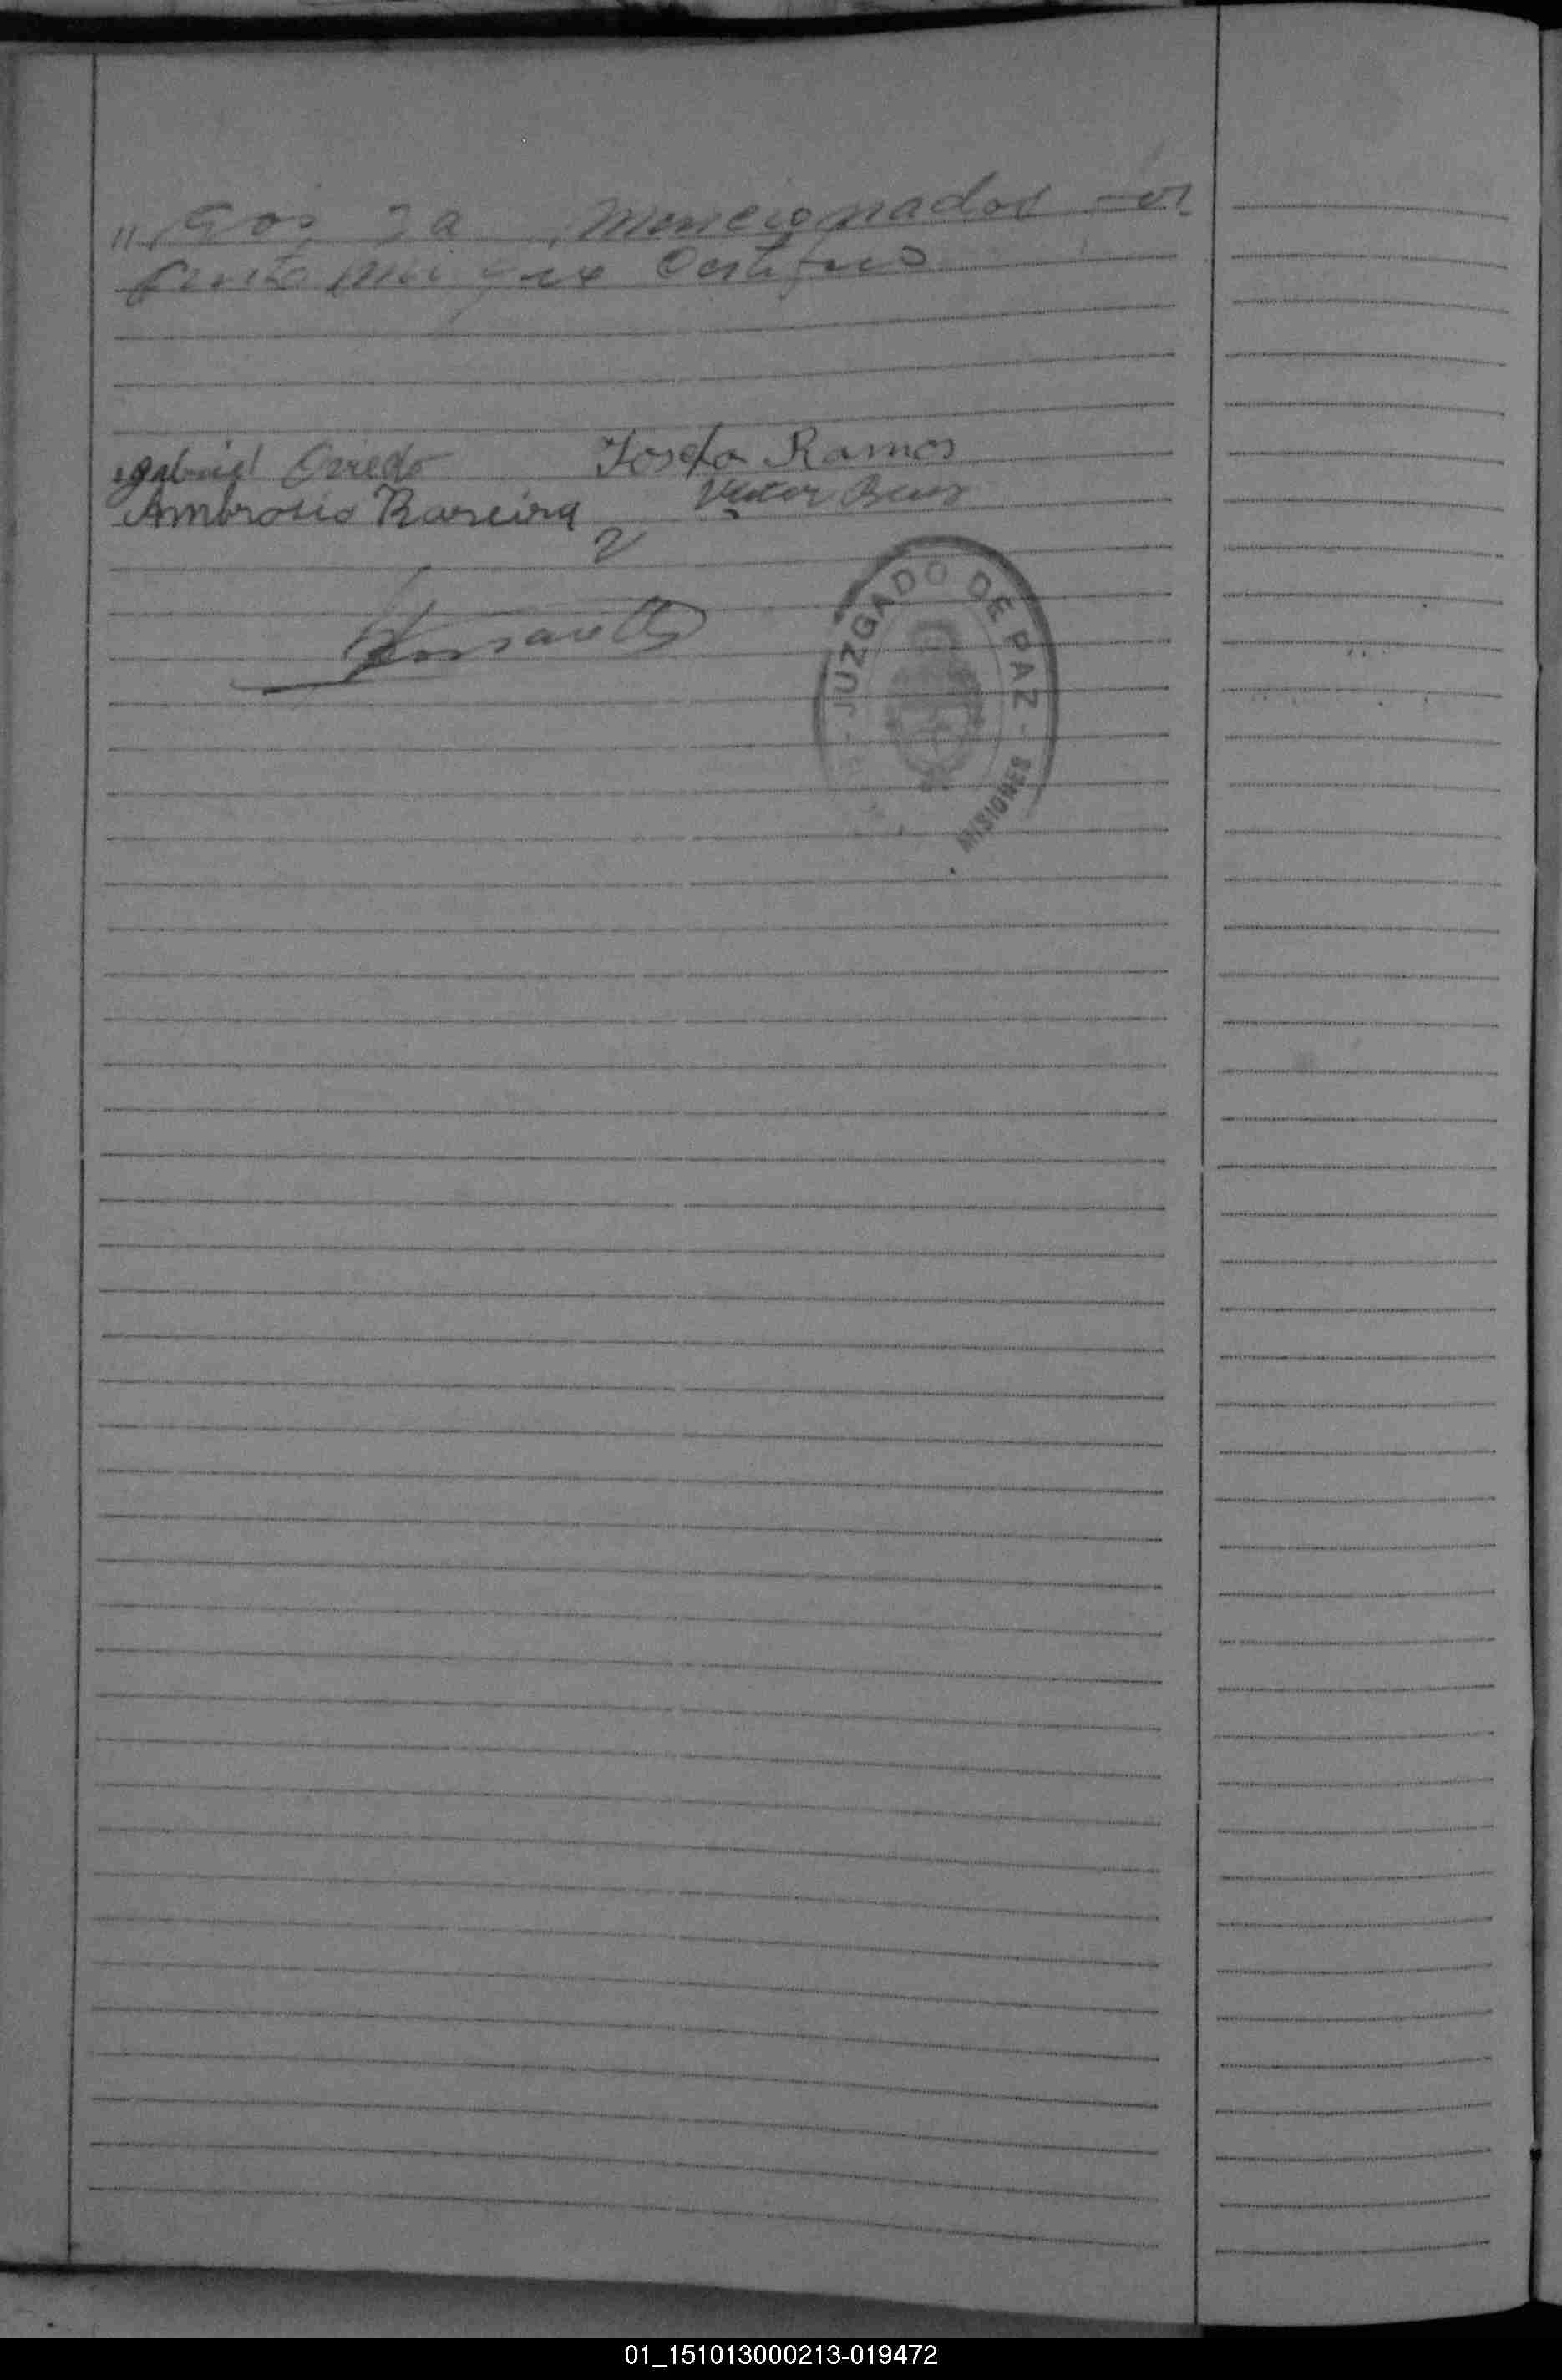 "gos ya mencionados
ante mi que Certifico
Gabriel Oviedo Josefa Ramos
Ambrosio Bareira Victor
JUZGADO DE PAZ
MISIONES
01_151013000213-019472